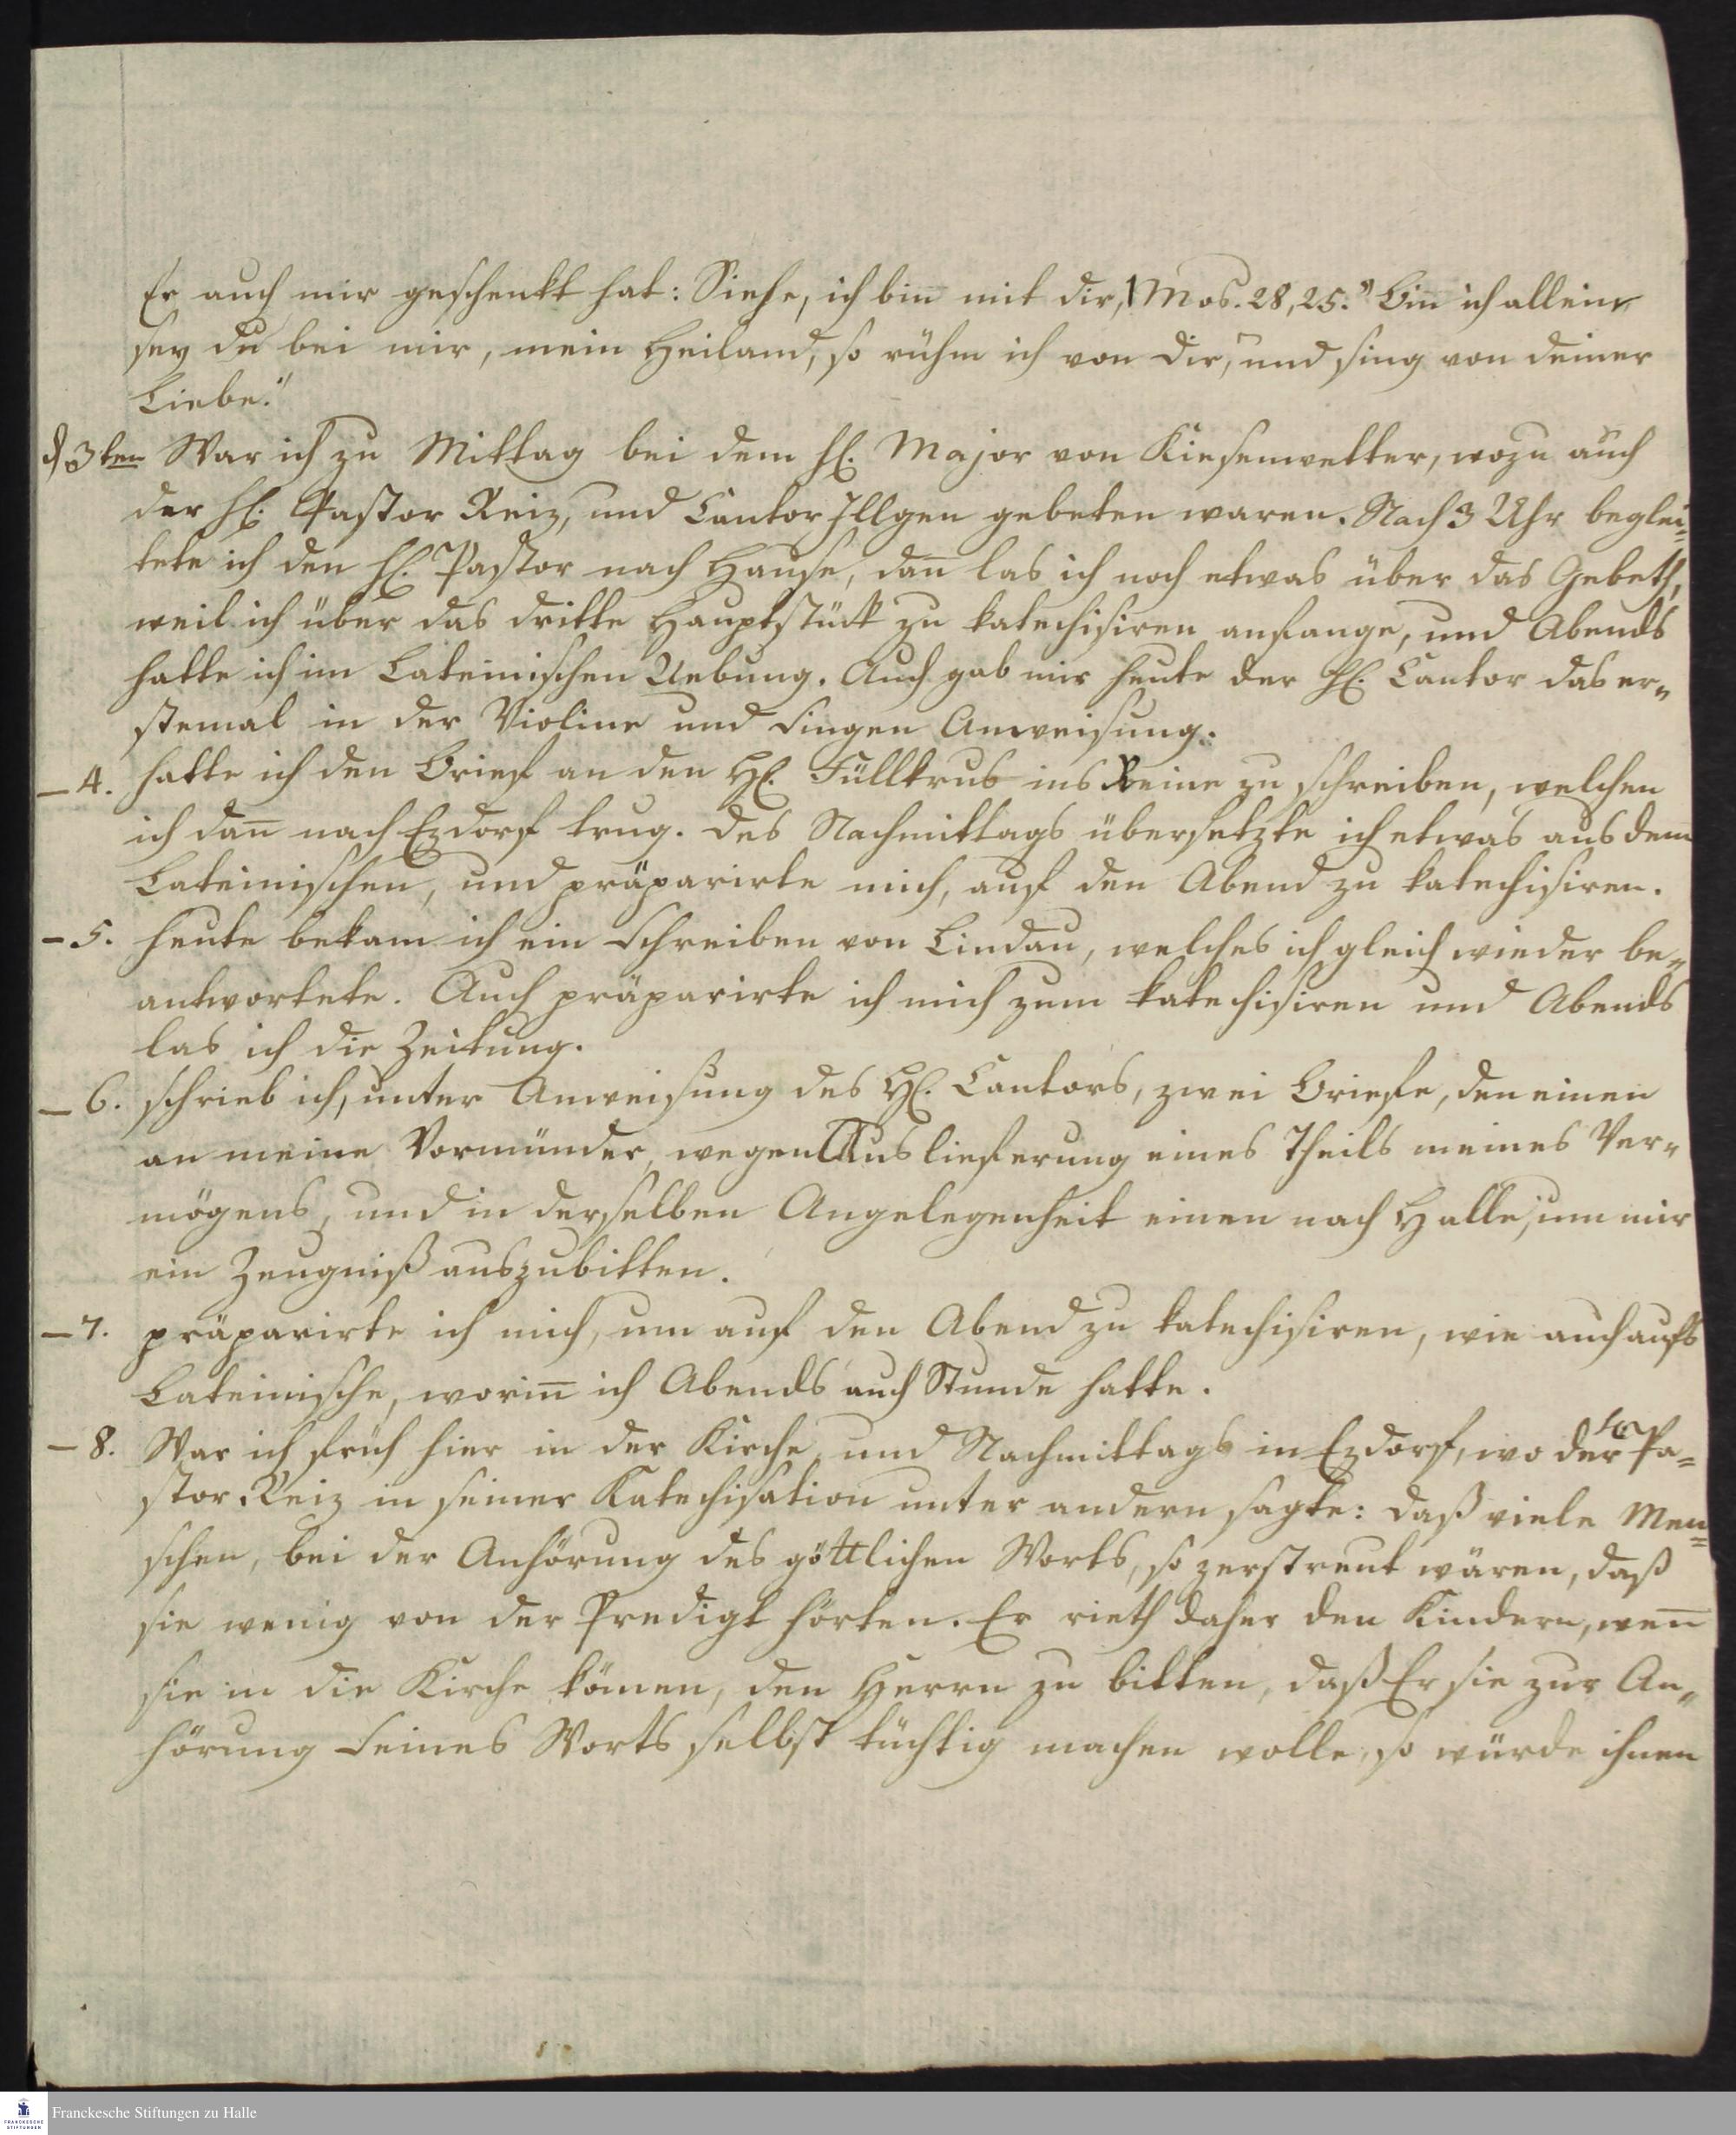 Er auch mir geschenkt hat: Siehe, ich bin mit dir, 1 Mos. 28, 25. " Bin ich allein,
sey du bei mir, mein Heiland, so rühm ich von dir, und sing von deiner
Liebe."
d 3ten War ich zu Mittag bei dem H. Major von Kiesenwetter, wozu auch
der H. Pastor Reiz, und Cantor Illgen gebeten waren. Nach 3 Uhr beglei=
tete ich den H. Pastor nach Hause, dan̄ las ich noch etwas über das Gebeth,
weil ich über das dritte Hauptstück zu katechisiren anfange, und Abends
hatte ich im Lateinischen Uebung. Auch gab mir heute der H. Cantor das er=
stemal in der Violine und Singen Anweisung.
– 4. hatte ich den Brief an den H. Fülltrub ins Reine zu schreiben, welchen
ich dan̄ nach Ezdorf trug. Des Nachmittags übersetzte ich etwas aus dem
Lateinischen, und präparirte mich, auf den Abend zu katechisiren.
– 5. heute bekam ich ein Schreiben von Lindau, welches ich gleich wieder be=
antwortete. Auch präparirte ich mich zum katechisiren und Abends
las ich die Zeitung.
– 6. schrieb ich, unter Anweisung des H. Cantors, zwei Briefe, den einen
an meine Vormünder, wegen Auslieferung eines Theils meines Ver=
mögens, und in derselben Angelegenheit einen nach Halle, um mir
ein Zeugniß auszubitten.
– 7. präparirte ich mich, um auf den Abend zu katechisiren, wie auch aufs
Lateinische, worin̄ ich Abends auch Stunde hatte.
– 8. War ich früh hier in der Kirche, und Nachmittags in Ezdorf, wo der H. Pa=
stor Reiz in seiner Katechisation unter andern sagte: daß viele Men=
schen, bei der Anhörung des göttlichen Worts, so zerstreut wären, daß
sie wenig von der Predigt hörten. Er rieth daher den Kindern, wen̄
sie in die Kirche kömen, den Herrn zu bitten, daß Er sie zur An=
hörung Seines Worts selbst tüchtig machen wolle, so würde ihnen
FRANCKESCHE
STIFTUNGEN
Franckesche Stiftungen zu Halle